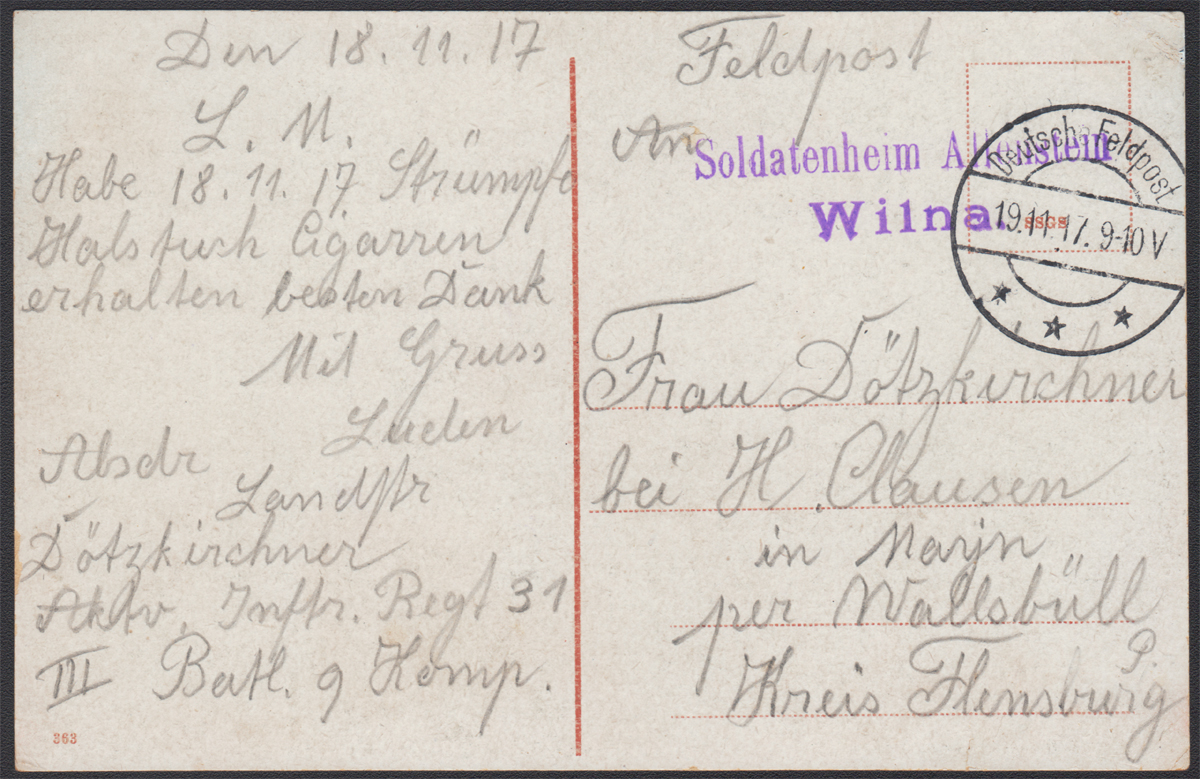 Den 18.11.17
L. M.
Habe 18.11.17 Strümpfe
Halstuch Cigarren
erhalten besten Dank
Mit Gruss
Luden
Absdr
Landstr
Dötzkirchner
Aktv. Inftr. Regt 31
III Batl. 9 Komp.
363
Feldpost
An
Soldatenheim Allenstein
Wilna.
Deutsche Feldpost
19.11.17. 9-10 V
SSGS
Frau Dötzkirchner
bei H. Clausen
in Marjn
per Wallsbüll
P.
Kreis Flensburg